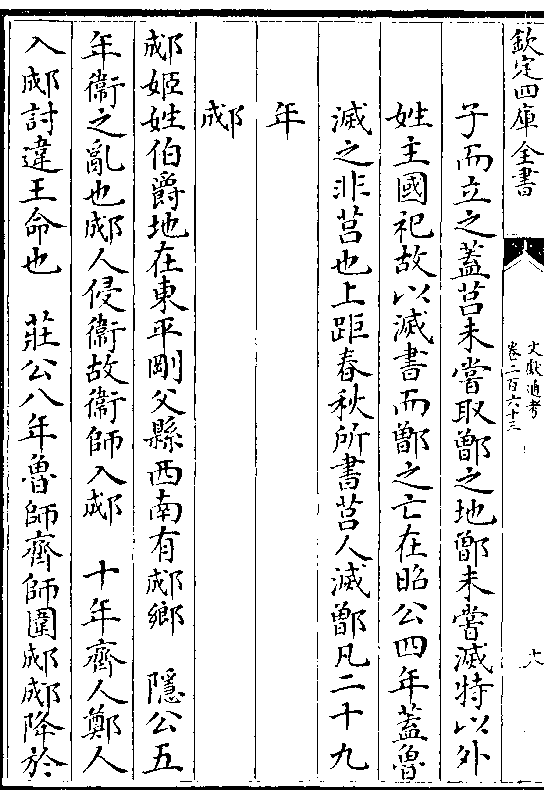 欽定四庫全書
文獻通考
卷二百六十三
子而立之蓋莒未嘗取鄫之地鄫未嘗滅特以外
姓主國祀故以滅書而鄫之亡在昭公四年蓋魯
滅之非莒也上距春秋所書莒人滅鄫凡二十九
年
郕
郕姬姓伯爵地在東平剛父縣西南有郕鄉 隱公五
年衞之亂也郕人侵衞故衞師入郕 十年齊人鄭人
入郕討違王命也 莊公八年魯師齊師圍郕郕降於